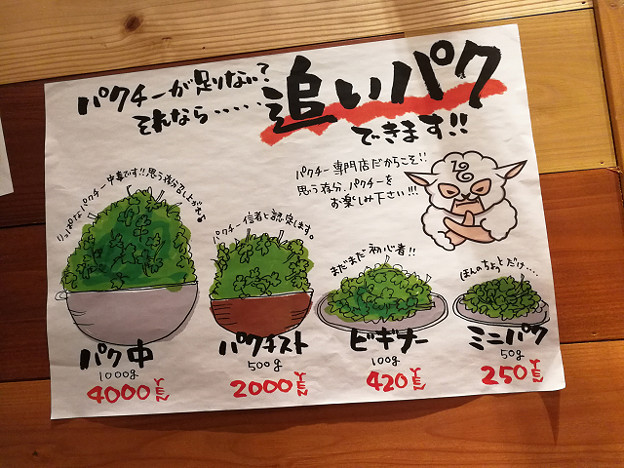 パクチーが足りない?
それなら・・・・・
追いパク
できます!!
パクチー専門店だからこそ!!
思う存分、パクチーを
お楽しみ下さい!!!
りっぱなパクチー中毒です!!思う存分召し上がれ♪
パクチー信者と認定します。
まだまだ初心者!!
ほんのちょっとだけ・・・・
パク中
1000g
4000YEN
パクチスト
500g
2000YEN
ビギナー
100g
420YEN
ミニパク
50g
250YEN